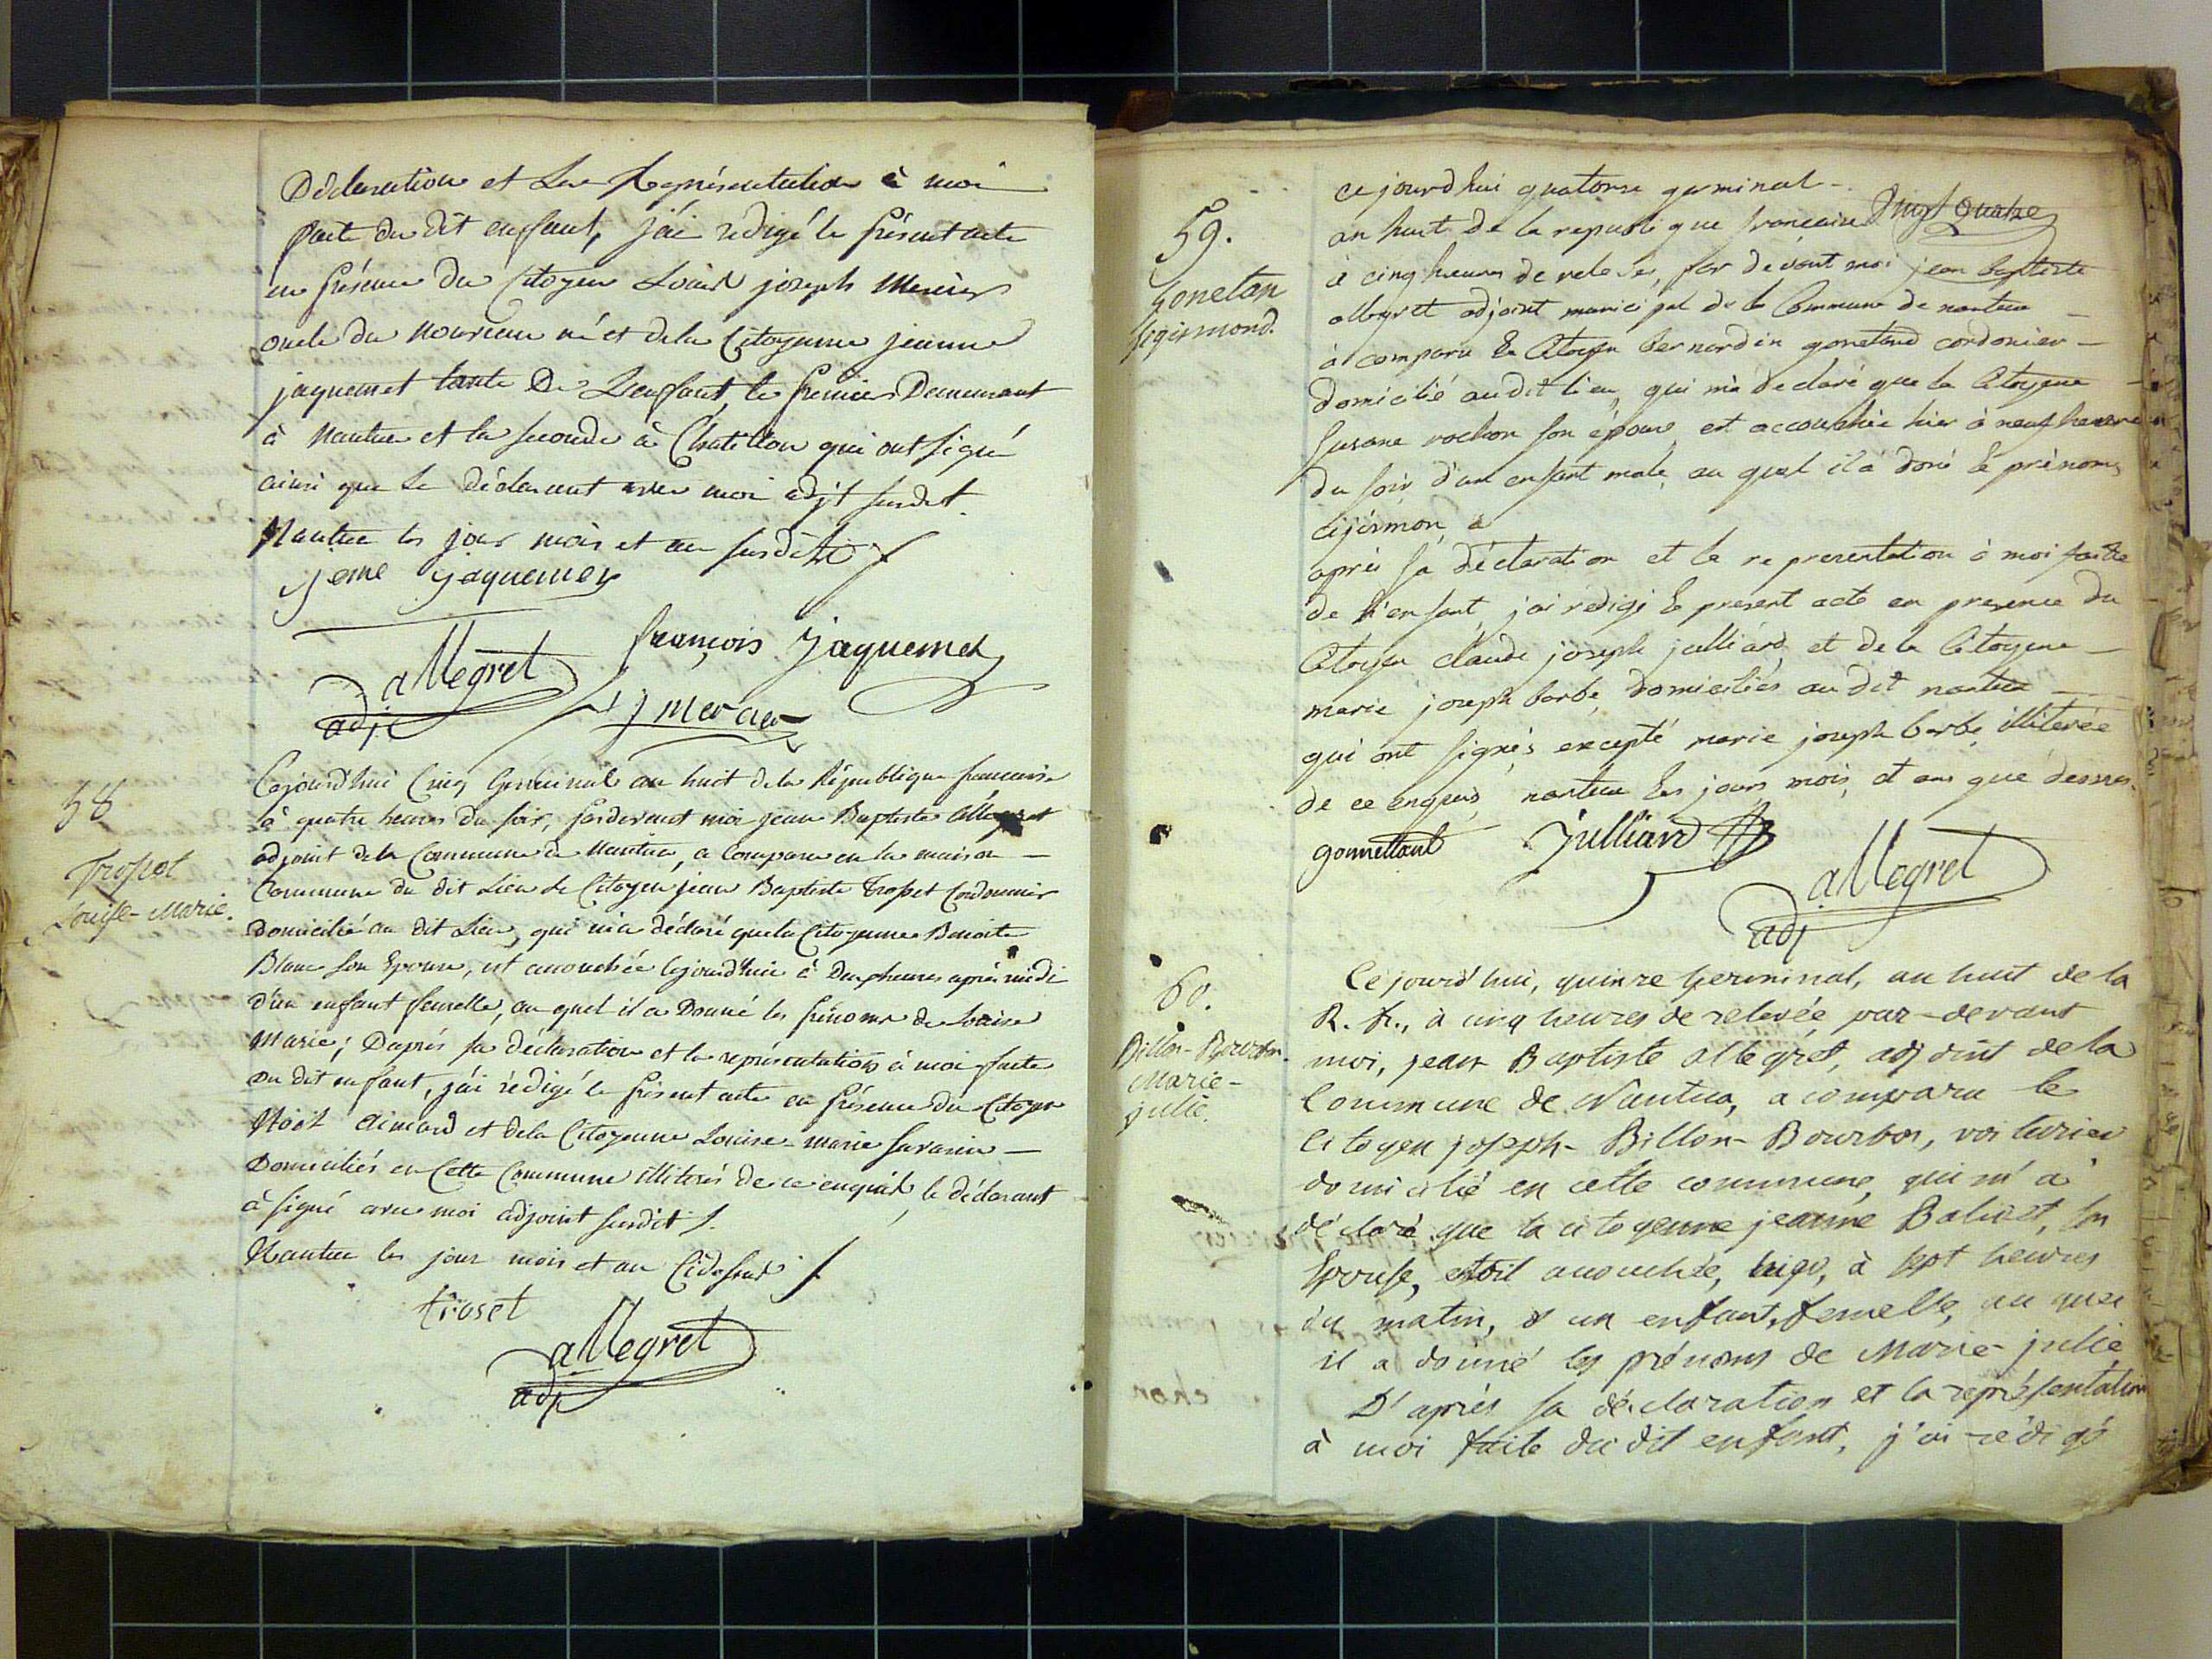 Déclaration et La Représentation à moi
faite du dit enfant, j'ai redigé le présent acte
en présence du Citoyen Louis joseph Mercier
oncle du nouveau né et dela Citoyenne jeanne
jaquemet tante De L'enfant, le premier Demeurant
à Nantua et la seconde à Chatillon qui ont signé
ainsi que Le déclarant avec moi adjt susdit.
Nantua les jour mois et an susdits
jeme jaquemet
françois jaquemet
allegret
adj
L j mercier
58
Trosset
Louise-Marie.
Cejourd'hui Cinq Germinal an huit de la République francaise
à quatre heures du soir, pardevant moi jean Baptiste Allegret
adjoint dela Commune de Nantua, a Comparu en la maison
Commune du dit Lieu le Citoyen jean Baptiste Trosset Cordonnier
domicilié au dit Lieu, qui m'a déclaré que la Citoyenne Benoite
Blanc son Epouse, est accouchée cejourd'hui à Deux heures après midi
d'un enfant femelle, au quel il a Donné les prénoms de Louise
Marie; D'après sa déclaration et la représentation à moi faite
du dit enfant, j'ai rédigé le présent acte en présence du Citoyen
Noël Aimard et dela Citoyenne Louise-marie Savarin
Domiciliés en Cette Commune illiterés de ce enquis, le déclarant
à signé avec moi adjoint susdit
Nantua les jour mois et an Cidessus
troset
allegret
adj
59.
gonetan
sigismond.
ce jourd hui quatorse germinal
an huit de la republi que francaise
à cinq heures de relevée, par devant moi jean baptiste
allegret adjoint municipal de la Commune de nantua
à comparu le Citoyen bernardin gonetand cordonier
domicilié audit lieu, qui m'a déclaré que la Citoyene
Susane rochon son épouse est accouchée hier à neuf heures
du soir d'un enfant male au quel il à doné le prénoms
cijismon
après sa déclaration et la representation à moi faitte
de l'enfant j'ai redigé le present acte en presence du
Citoyen claude joseph julliard et de la Citoyene
marie joseph barbe domiciliés au dit nantua
qui ont signés excepté marie joseph barbe illiterée
de ce enquis nantua les jours mois et ans que dessus.
gonnettant
Julliard
allegret
adj
60.
Billon-Bourbon.
Marie-
julie.
Cejourd'hui, quinze Germinal, an huit de la
R. fr., à cinq heures de relevée par-devant
moi, jean Baptiste allegret, adjoint dela
Commune de Nantua, a comparu le
Citoyen joseph-Billon-Bourbon, voiturier
domicilié en cette commune, qui m'a
déclaré que la citoyenne jeanne Baliset, son
Epouse, étoit accouchée, à sept heures
du matin, d'un enfant, femelle, au quel
il a donné les prénoms de Marie-julie
D'après sa déclaration et la représentation
à moi faite du dit enfant, j'ai rédigé